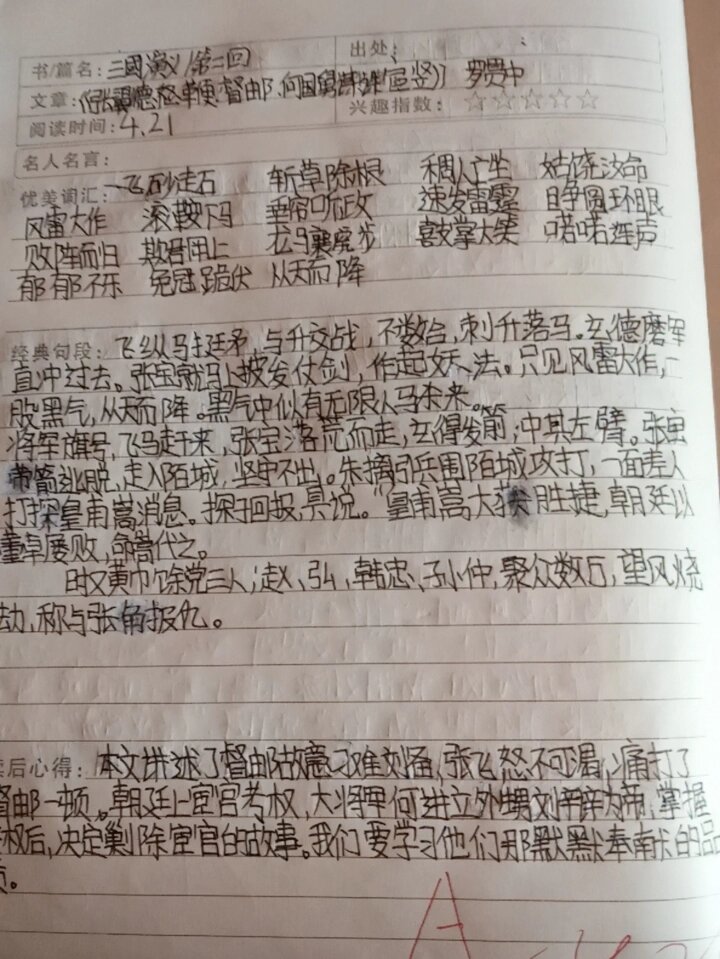 书/篇名：三國演义(第二回) 出处：
文章：(张翼德怒鞭督邮、何国舅谋诛宦竖) 罗贯中
阅读时间：4.21 兴趣指数：☆☆☆☆☆
名人名言：
优美词汇：飞砂走石 斩草除根 稠人广坐 姑饶汝命
风雷大作 滚鞍下马 垂帘听政 速发雷霆 睁圆环眼
败阵而归 欺君罔上 龙马襄虎步 鼓掌大笑 喏喏连声
郁郁不乐 免冠跪伏 从天而降
经典句段：飞纵马挺矛，与升交战，不数合，刺升落马。玄德麾军
直冲过去。张宝就马上披发仗剑，作起妖法。只见风雷大作，一
股黑气，从天而降。黑气中似有无限人马杀来。
将军旗号，飞马赶来，张宝落荒而走，玄得发箭，中其左臂。张宝
带箭逃脱，走入陌城，坚守不出。朱摛引兵围陌城攻打，一面差人
打探皇甫嵩消息。探子回报，具说。“皇甫嵩大获胜捷，朝廷以
董卓屡败，命嵩代之。
时又黄巾馀党三人，赵、弘、韩忠、孙仲，聚众数万，望风烧
劫，称与张角报仇。
读后心得：本文讲述了督邮故意刁难刘备，张飞怒不可遏，痛打了
督邮一顿。朝廷上宦官考权，大将军何进立外甥刘辩为帝，掌握
权后，决定剿除宦官的故事。我们要学习他们那默默奉献的品
质。
A